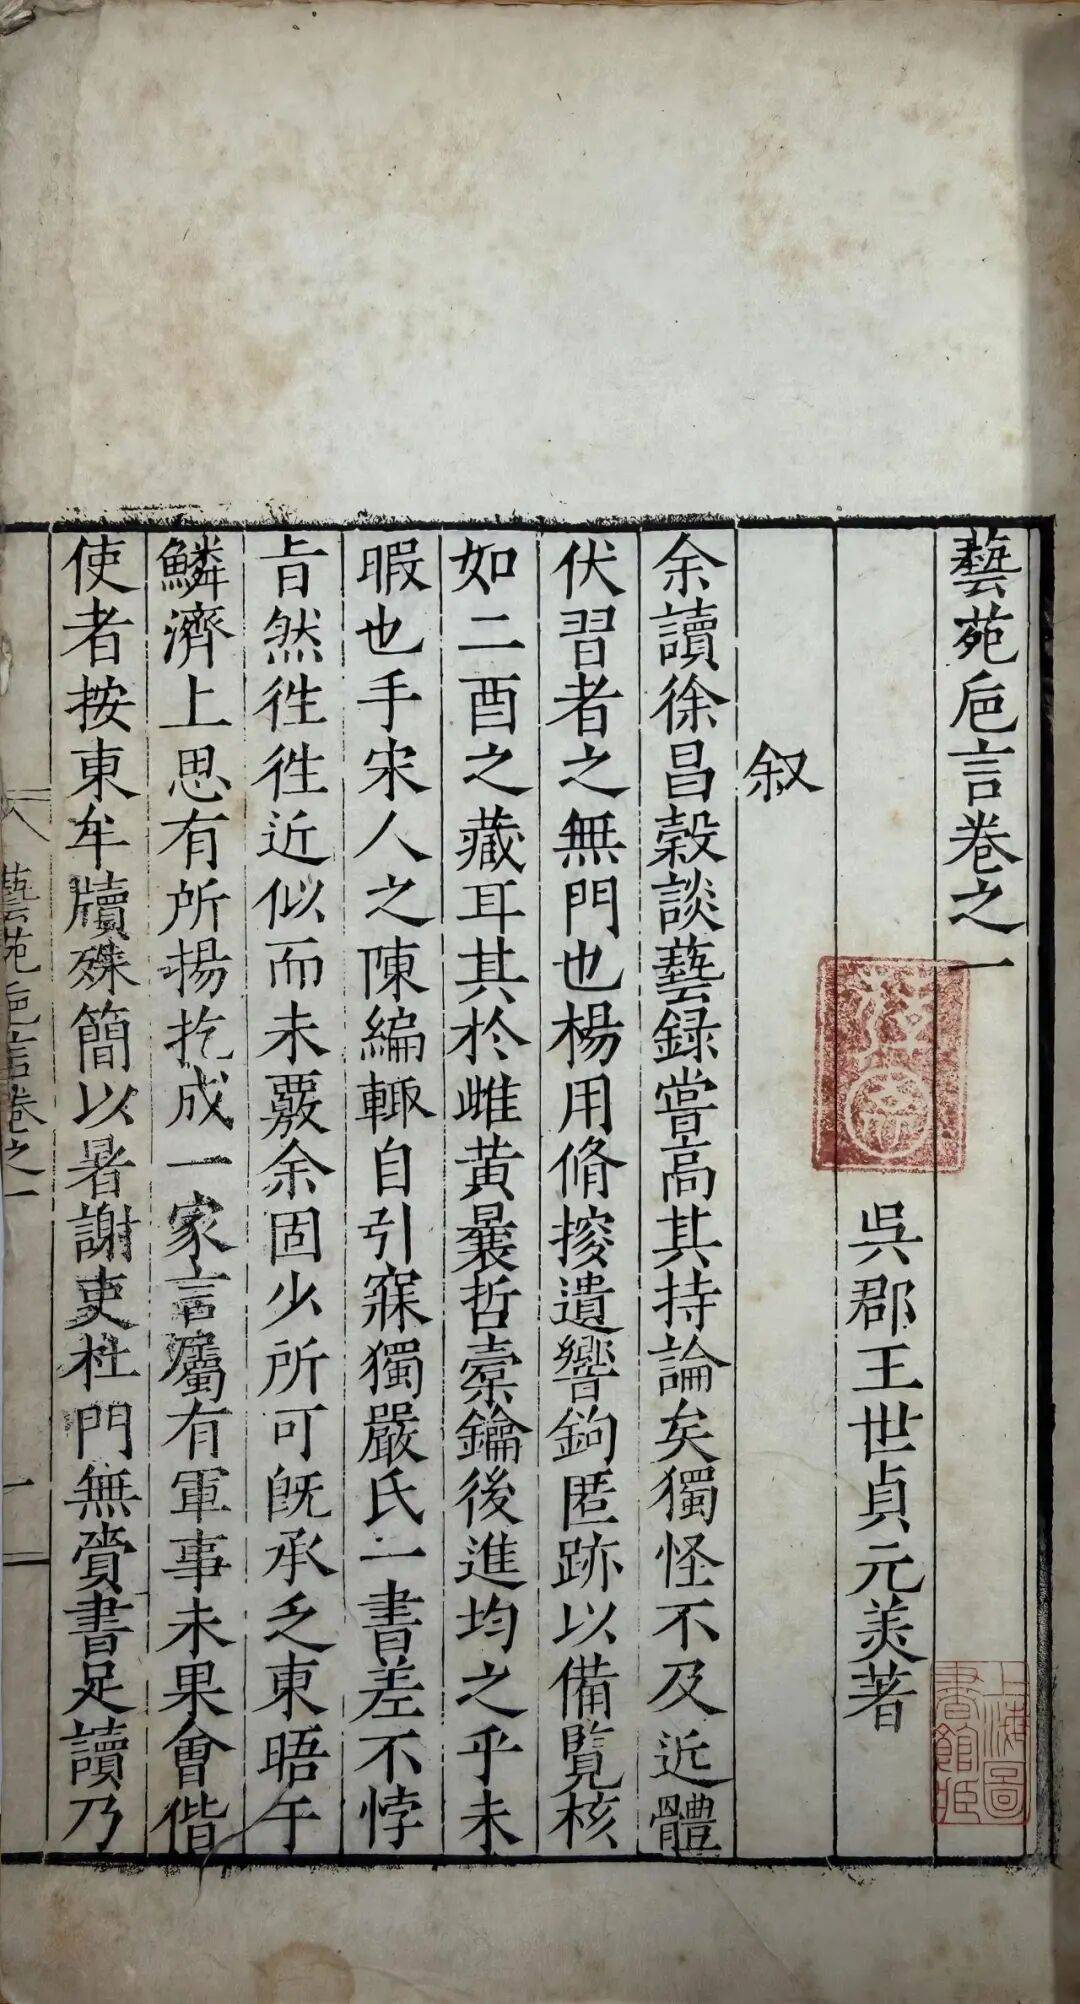 藝苑巵言卷之一
吳郡王世貞元美著
叙
余讀徐昌穀談藝録嘗高其持論矣獨怪不及近體
伏習者之無門也楊用脩搜遺響鉤匿跡以備覧核
如二酉之藏耳其於雌黃曩哲橐鑰後進均之乎未
暇也手宋人之陳編輙自引寐獨嚴氏一書差不悖
旨然徃徃近似而未覈余固少所可旣承乏東晤于
鱗濟上思有所揚扢成一家言屬有軍事未果會偕
使者按東牟牘殊簡以暑謝吏杜門無賫書足讀乃
藝苑巵言卷之一
一
上海圖書館藏